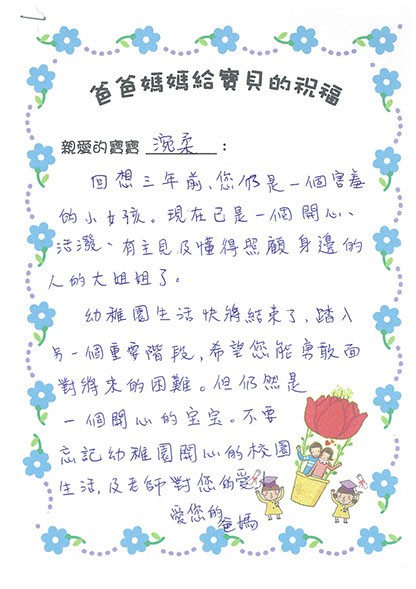 爸爸媽媽給寶貝的祝福
親愛的寶寶 涴柔 :
回想三年前、您仍是一個害羞
的小女孩。現在已是一個開心、
活潑、有主見及懂得照顧身邊的
人的大姐姐了。
幼稚園生活快將結束了,踏入
另一個重要階段,希望您能勇敢面
對將來的困難。但仍然是
一個開心的宝宝。不要
忘記幼稚園開心的校園
生活,及老師對您的愛
愛您的
爸媽